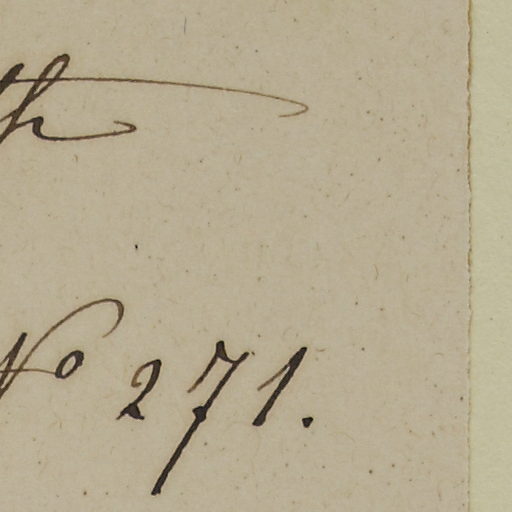 th
No 271.